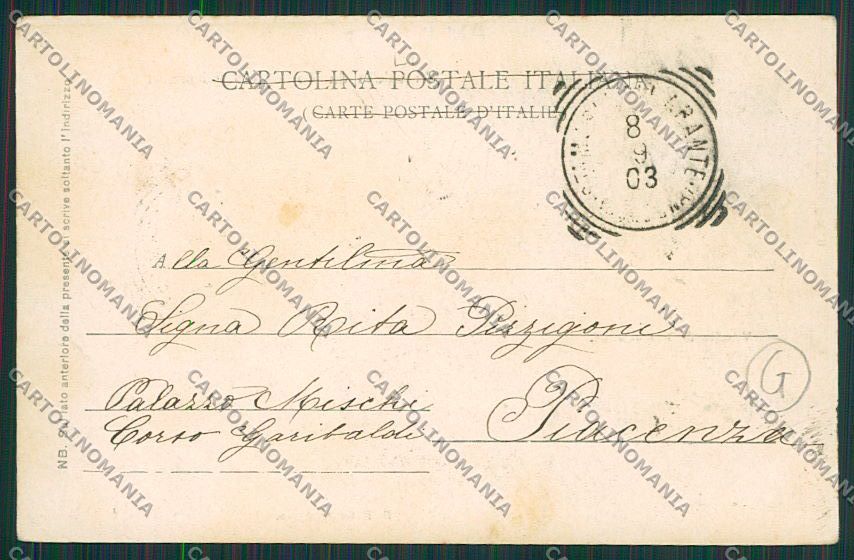 CARTOLINA POSTALE ITALIANA
(CARTE POSTALE D'ITALIE
8
9
03
Alla Gentilma
Segna Rita Pizzigoni
Palazzo Mischi
Corso Garibaldi
Piacenza
G
NB. Sul lato anteriore della presente si scrive soltanto l'indirizzo
CARTOLINOMANIA